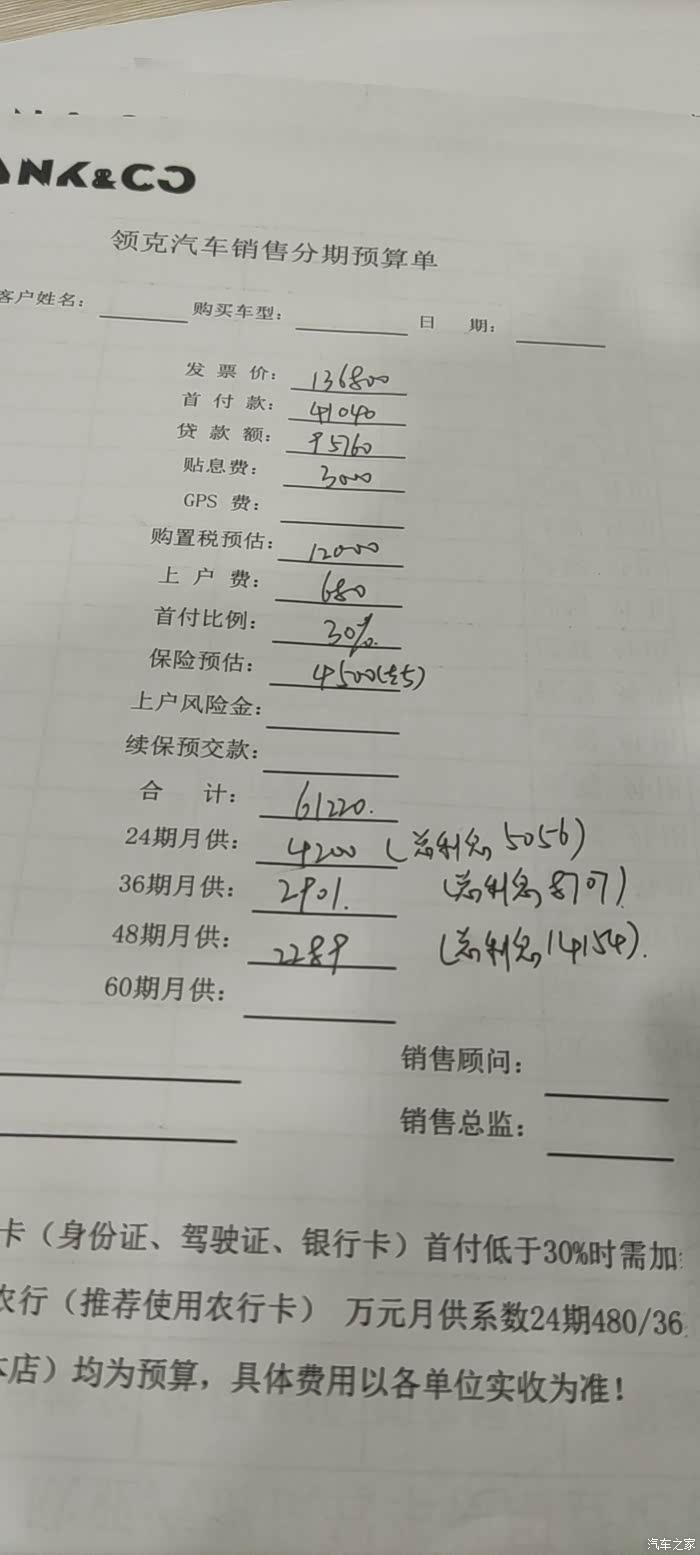 NK&CO
领克汽车销售分期预算单
客户姓名： 购买车型： 日 期：
发 票 价： 136800
首 付 款： 41040
贷 款 额： 95760
贴息费： 3000
GPS 费：
购置税预估： 12000
上 户 费： 680
首付比例： 30%
保险预估： 4500(左右)
上户风险金：
续保预交款：
合 计： 61220.
24期月供： 4200 (总利息 5056)
36期月供： 2901. (总利息 8707)
48期月供： 2289 (总利息 14154).
60期月供：
销售顾问：
销售总监：
卡（身份证、驾驶证、银行卡）首付低于30%时需加
农行（推荐使用农行卡） 万元月供系数24期480/36
本店）均为预算，具体费用以各单位实收为准！
汽车之家